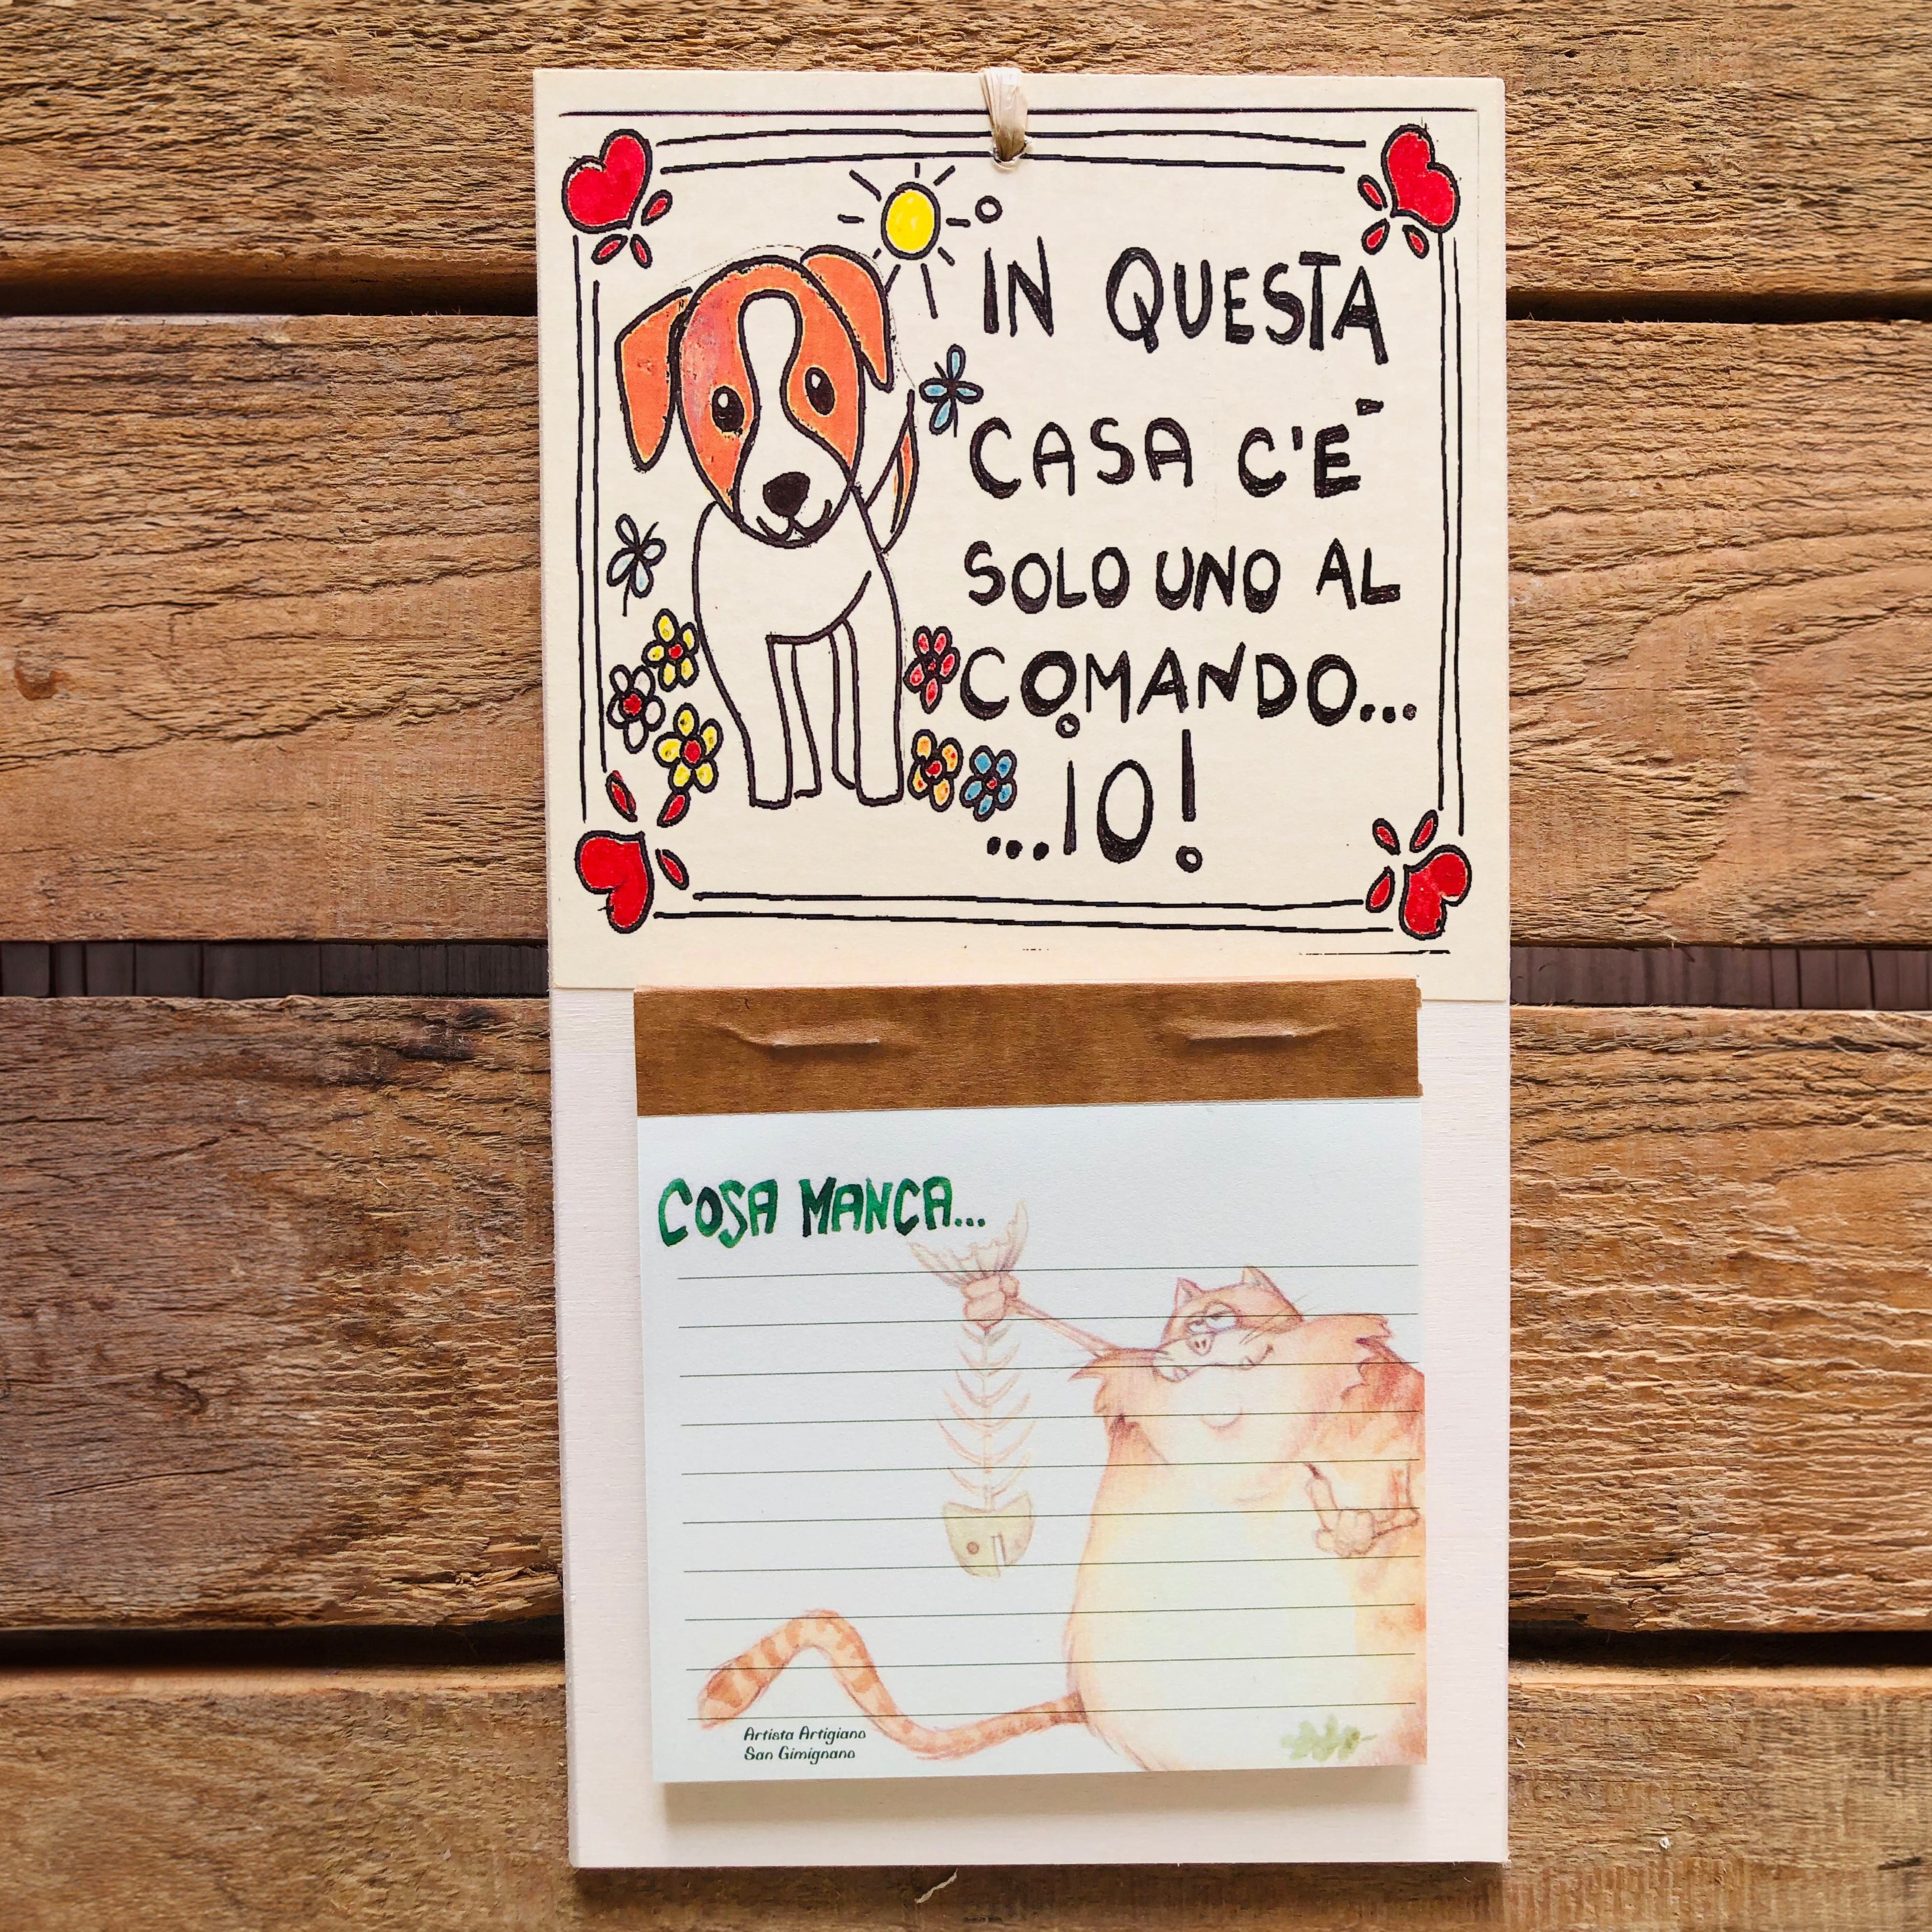 IN QUESTA
CASA C'È
SOLO UNO AL
COMANDO...
...IO!
COSA MANCA...
Artista Artigiano
San Gimignano